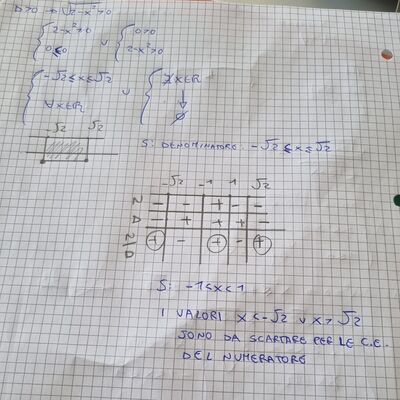 D>0 → √2-x²>0
{ 2-x²≥0 ∪ { 0>0
0≤0 2-x²>0
{ -√2≤x≤√2 ∪ { ∄x∈R
∀x∈R ↓
∅
-√2 √2
S: DENOMINATORE: -√2≤x≤√2
-√2 -1 1 √2
N - - + - -
D - + + + -
N/D + - + - +
S: -1<x<1
I VALORI x<-√2 ∨ x>√2
SONO DA SCARTARE PER LE C.E.
DEL NUMERATORE